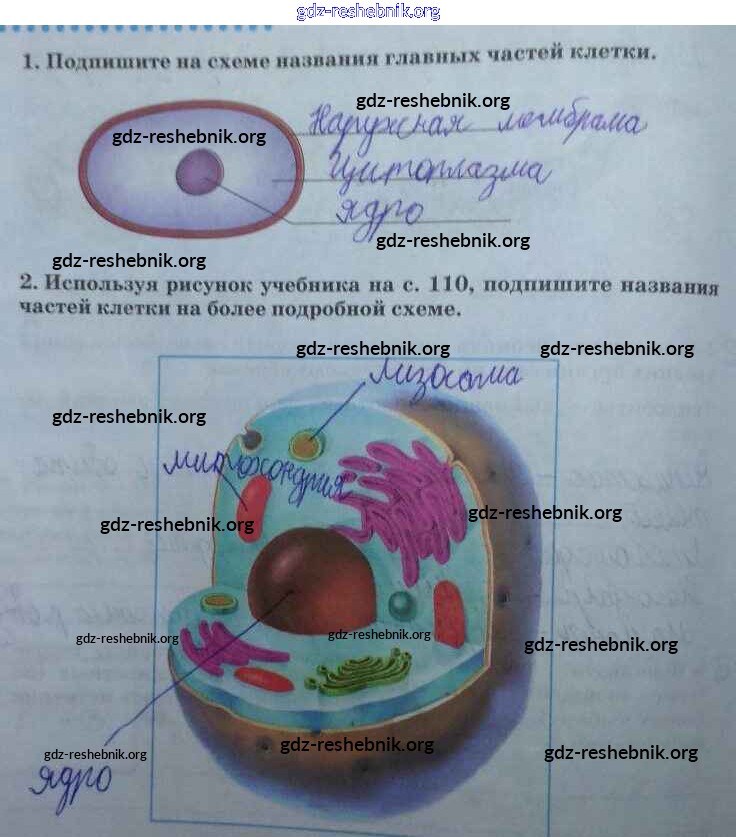 gdz-reshebnik.org
1. Подпишите на схеме названия главных частей клетки.
gdz-reshebnik.org
gdz-reshebnik.org
Наружная мембрана
Цитоплазма
ядро
gdz-reshebnik.org
gdz-reshebnik.org
2. Используя рисунок учебника на с. 110, подпишите названия
частей клетки на более подробной схеме.
gdz-reshebnik.org
gdz-reshebnik.org
лизосома
gdz-reshebnik.org
митохондрия
gdz-reshebnik.org
gdz-reshebnik.org
gdz-reshebnik.org
gdz-reshebnik.org
gdz-reshebnik.org
gdz-reshebnik.org
gdz-reshebnik.org
gdz-reshebnik.org
ядро